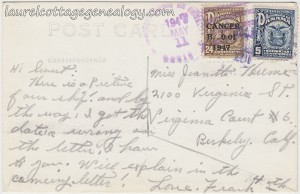 laurelcottagegenealogy.com
POST CARD
CANCER
B. 001
1947
PANAMA
1947
MAY
11
CORRESPONDENCE
Hi Aunt!
Here is a picture
of our ship. and by
the way, I got the
date wrong on
the letter, I have
to you. Will explain in the
coming letter!
Love, Frank
Miss Jeanette Thieme
2100 Virginia St.
Virginia Court #6
Berkeley, Calif.